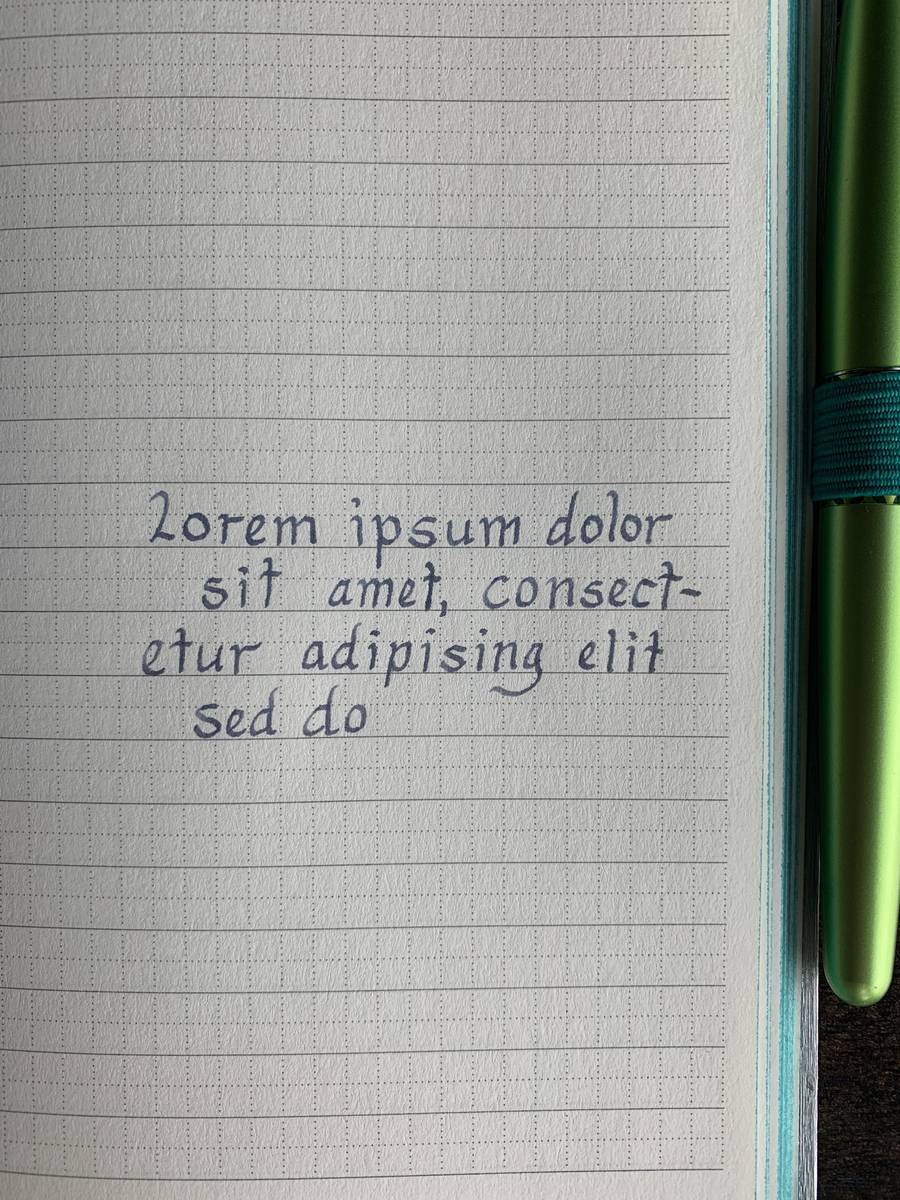 Lorem ipsum dolor
sit amet, consect-
etur adipising elit
sed do